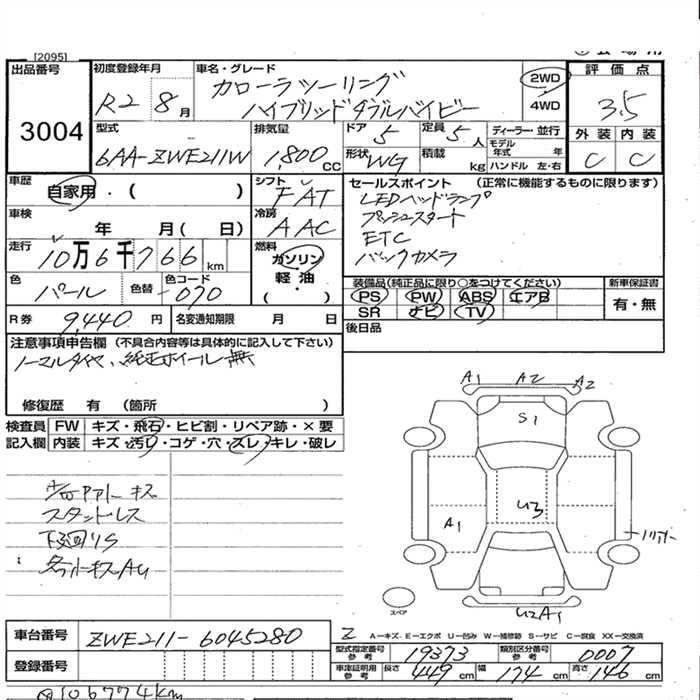 [2095]
出品番号
3004
初度登録年月
R2 8月
車名・グレード
カローラツーリング
ハイブリッドダブルバイビー
2WD
4WD
評価点
3.5
外装 内装
C C
型式
6AA-ZWE211W
排気量
1800 CC
ドア 5
定員 5人
形状 WG
積載 kg
ディーラー・並行
モデル年式 年
ハンドル 左・右
車歴
自家用・( )
シフト
FAT
セールスポイント (正常に機能するものに限ります)
LEDヘッドランプ
プッシュスタート
ETC
バックカメラ
車検
年 月( 日)
冷房
AAC
走行
10万6千766km
燃料
ガソリン
軽油
( ・ )
色
パール
色替
色コード
070
装備品(純正品に限り○をつけてください)
PS PW ABS エアB
SR ナビ TV
新車保証書
有・無
R券 9,440円
名変通知期限 月 日
後日品
注意事項申告欄 (不具合内容等は具体的に記入して下さい)
ノーマルタイヤ、純正ホイール無
修復歴 有 (箇所 )
検査員記入欄
FW キズ・飛石・ヒビ割・リペア跡・×要
内装 キズ・汚れ・コゲ・穴・スレ・キレ・破レ
スタッドレス
下廻りS
A1 A2 A2
S1
U3
A1
U2A1
スペア
車台番号
ZWE211-6045280
登録番号
Z
A-キズ・E-エクボ U-凹み W-補修跡 S-サビ C-腐食 XX-交換済
型式指定番号 参考 19373
類別区分番号 参考 0007
車庫証明用 参考 長さ 449cm 幅 174cm 高さ 146cm
106774km